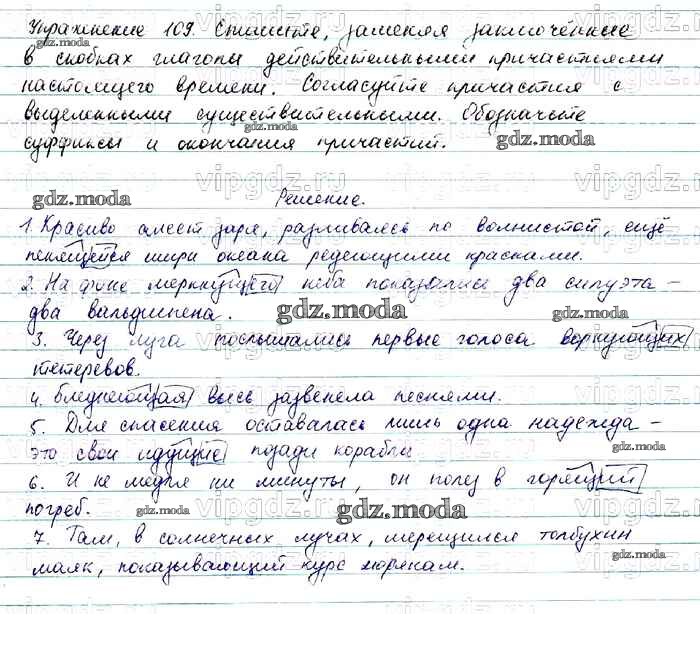 Упражнение 109. Спишите, заменяя заключённые
в скобках глаголы действительными причастиями
настоящего времени. Согласуйте причастия с
выделенными существительными. Обозначьте
суффиксы и окончания причастий.
gdz.moda
gdz.moda
gdz.moda
Решение.
1. Красиво алеет заря, разливаясь по волнистой, ещё
пенящейся шири океана редеющими красками.
2. На фоне меркнущего неба показались два силуэта –
два вальдшнепа.
3. Через луга послышались первые голоса воркующих
тетеревов.
4. Бледнеющая высь зазвенела песнями.
5. Для спасения оставалась лишь одна надежда –
это свои идущие позади корабли
6. И не медля ни минуты, он полез в горящий
погреб.
7. Там, в солнечных лучах, мерещился толбухин
маяк, показывающий курс морякам.